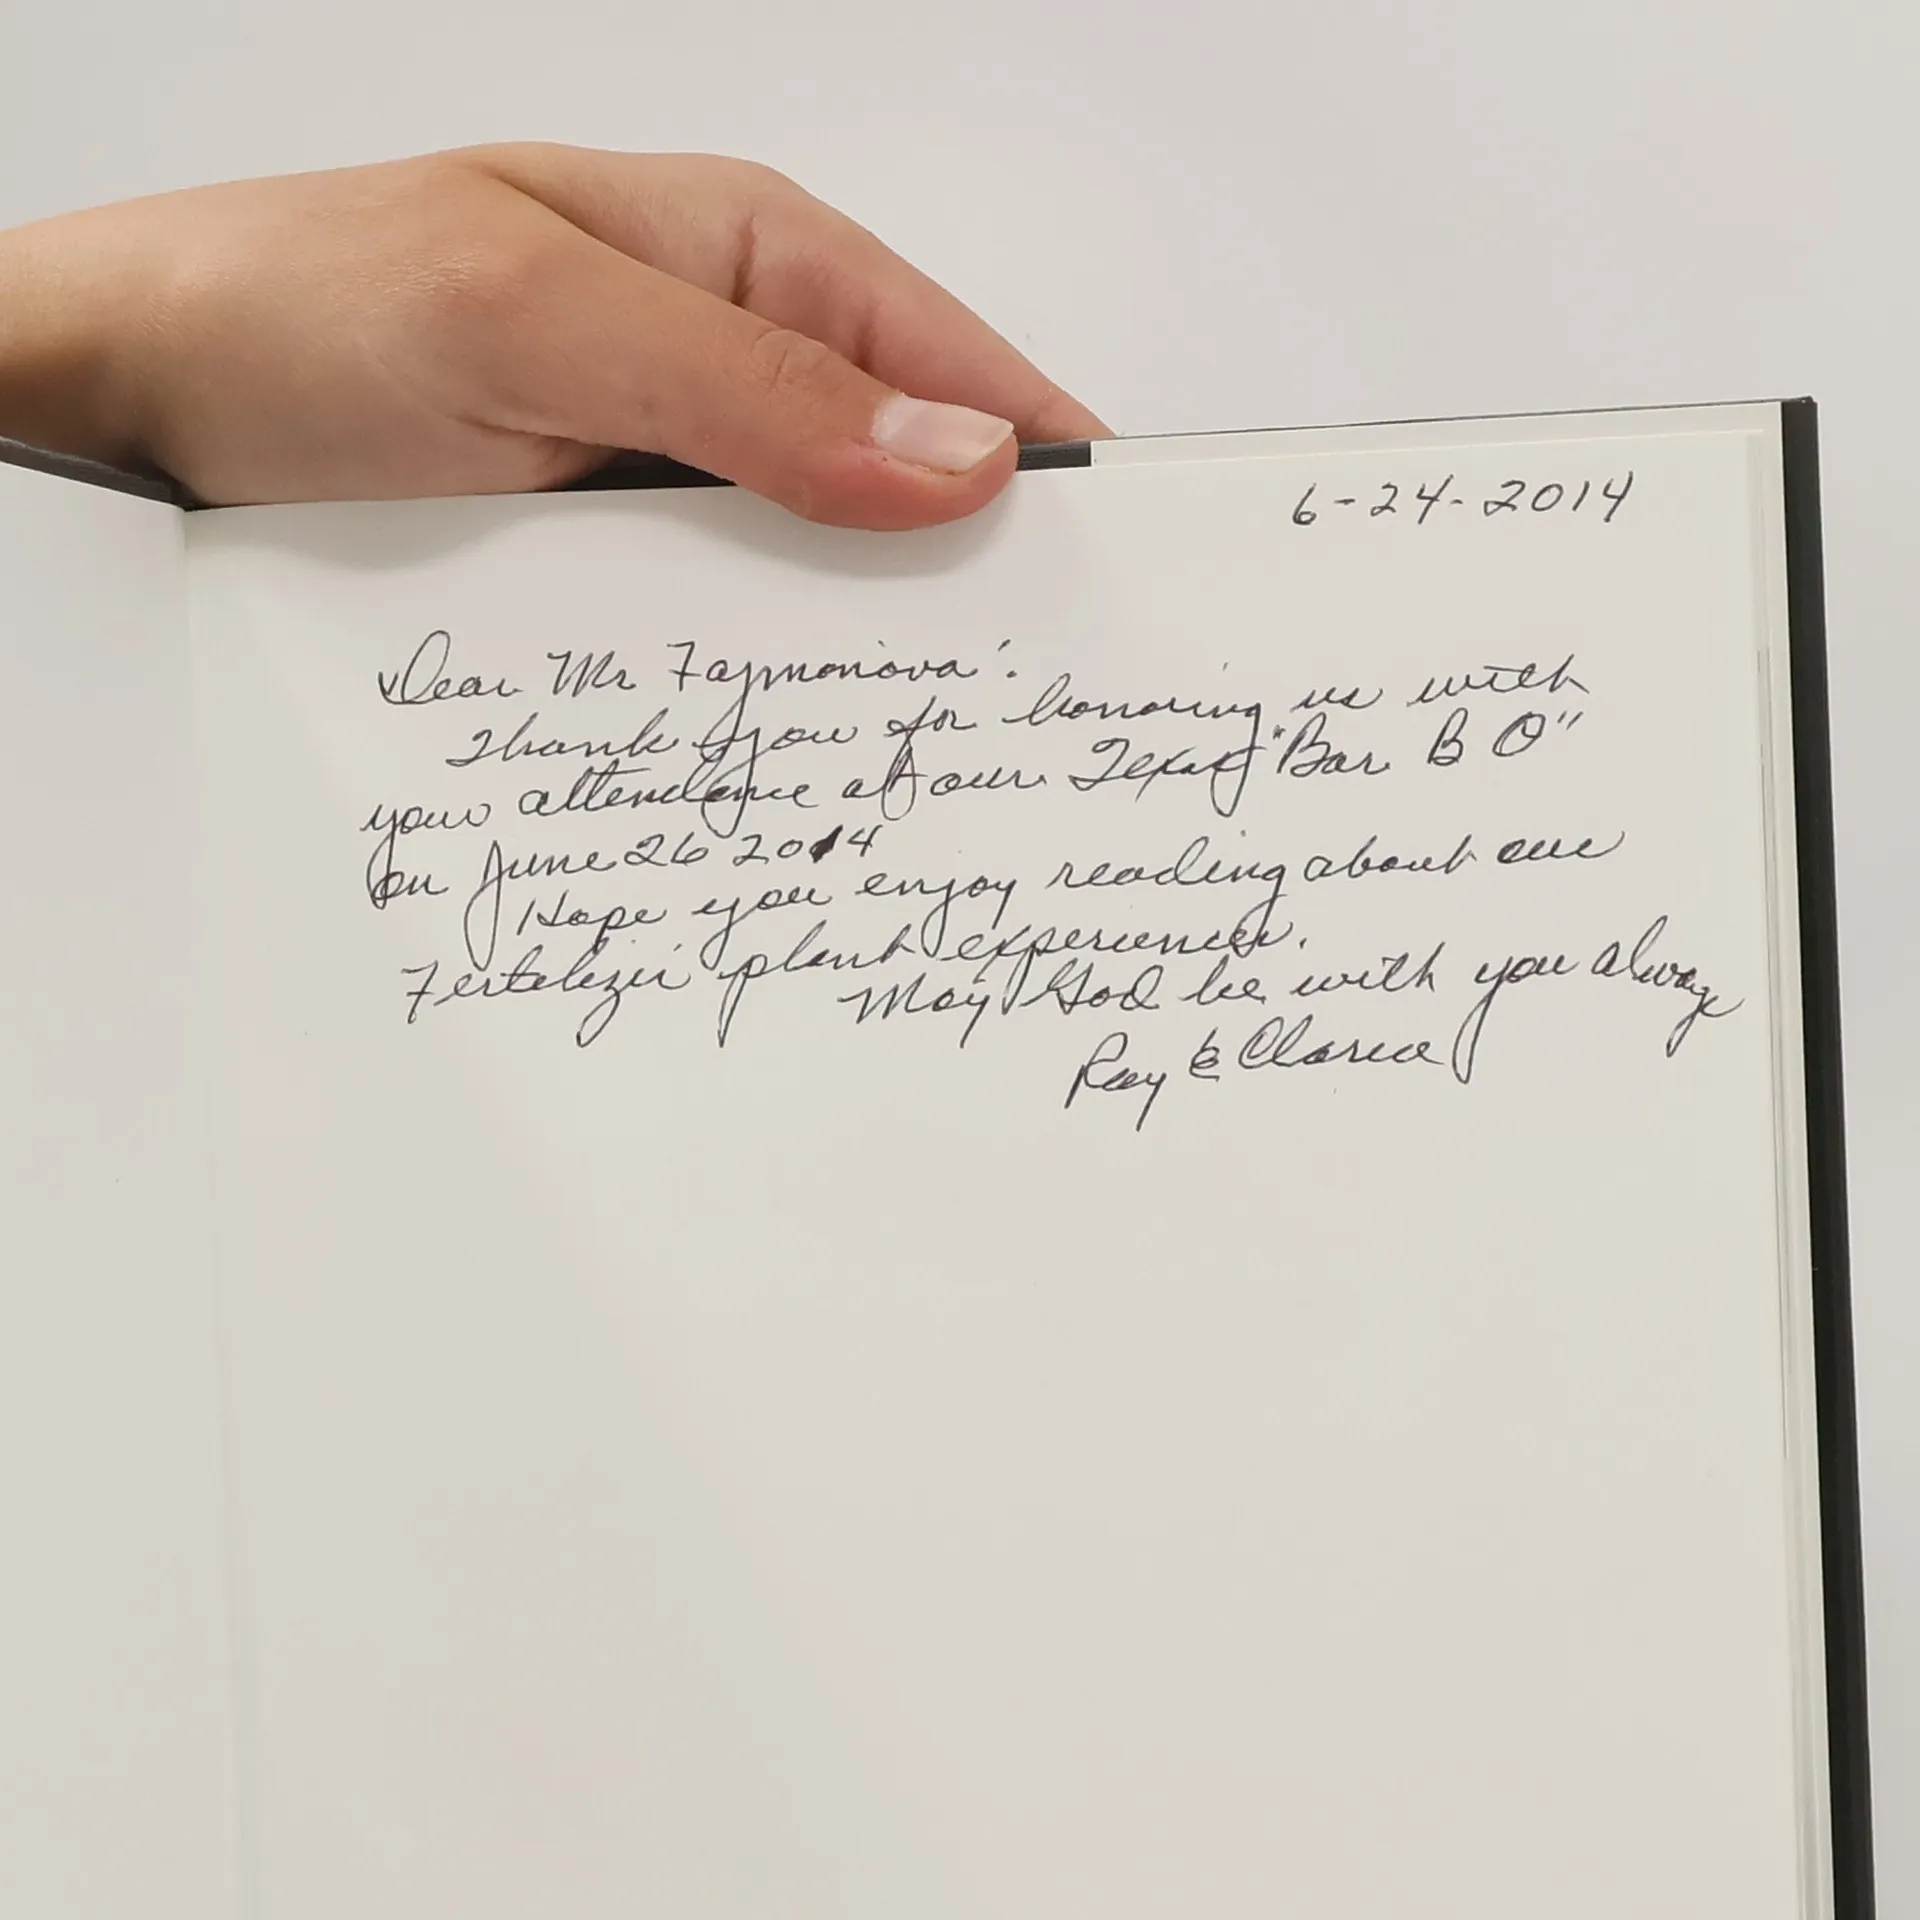 6-24-2014
Dear Mr Fajmonova'.
Thank you for honoring us with
your attendance at our Texas "Bar B Q"
on June 26 2014
Hope you enjoy reading about our
Fertilizer plant experiences.
May God be with you always
Ray & Clarice